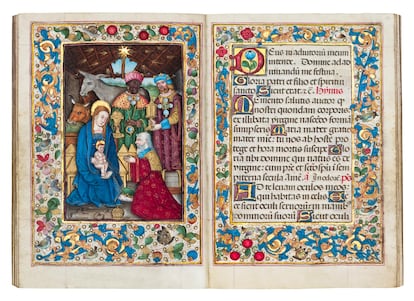 Deus in adiutoriũ meum
intende. Domine ad ad
iuuandũ me festina.
Gloria patri et filio et spiritui
sancto Sicut erat ꝛc̃. Hymnus
Memento salutis auctor q
nostri quondam corporis
ex illibata virgine nascẽdo formã
sumpseris Maria mater gratie
mater mie tu nos ab hoste pro
tege et hora mortis suscipe Glo
ria tibi domine qui natus es de
virgine cum pr̃e et sancto sp̃u in
sempiterna secula Amẽ
Ad te leuaui oculos meos
qui habitas in celis
Ecce sicut oculi seruorum in ma
nibus dominorũ suorũ Sicut oculi